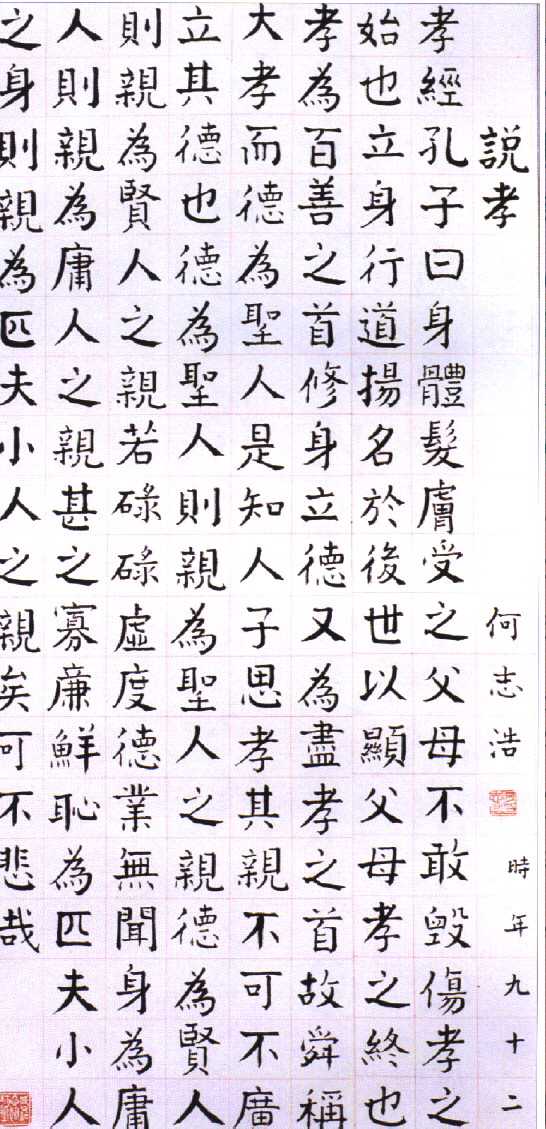 說孝
何志浩
時年九十二
孝經孔子曰身體髮膚受之父母不敢毀傷孝之
始也立身行道揚名於後世以顯父母孝之終也
孝為百善之首修身立德又為盡孝之首故舜稱
大孝而德為聖人是知人子思孝其親不可不廣
立其德也德為聖人則親為聖人之親德為賢人
則親為賢人之親若碌碌虛度德業無聞身為庸
人則親為庸人之親甚之寡廉鮮恥為匹夫小人
之身則親為匹夫小人之親矣可不悲哉